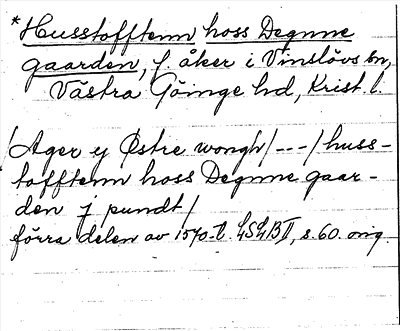 *Husstofftenn hoss Degnne
gaarden, f. åker i Vinslövs sn,
Västra Göinge hd, Krist. l.
/Ager y Østre wongh/---/huss-
tofftenn hoss Degnne gaar-
den j pundt/
förra delen av 1570-t. LSLB II, s. 60. orig.